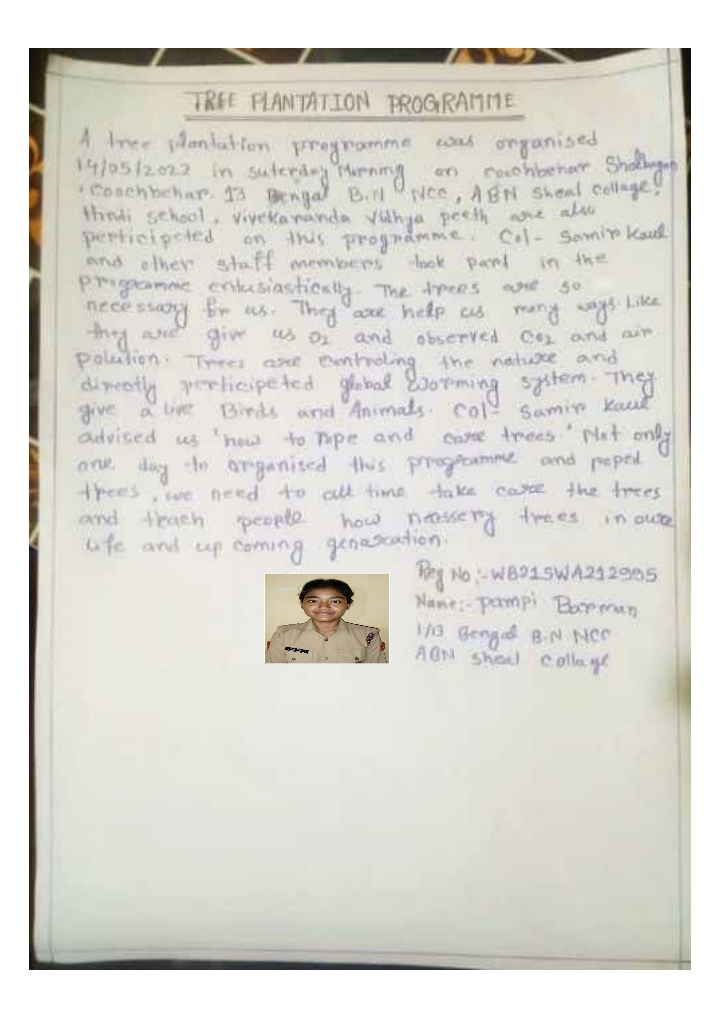 TREE PLANTATION PROGRAMME
A tree plantation programme was organised
14/05/2022 in suterday Morning on coochbehar Shalbagan
, Coochbehar. 13 Bengal B.N NCC, ABN Sheal Collage,
Hindi school, Vivekananda Vidhya peeth are also
perticipeted on this programme. Col- Samir Kaul
and other staff members took part in the
programme entusiastically. The trees are so
necessary for us. They are help us many ways. Like
they are give us O2 and observed CO2 and air
polution. Trees are controling the nature and
directly perticipeted global worming system. They
give a live Birds and Animals. Col- Samir Kaul
advised us 'how to Pope and care trees.' Not only
one day to organised this programme and poped
trees, we need to all time take care the trees
and teach people how nessery trees in oure
life and up coming genaration.
Reg No:-WB21SWA212995
Name:- Pampi Barman
1/13 Bengal B.N NCC
ABN Sheal Collage